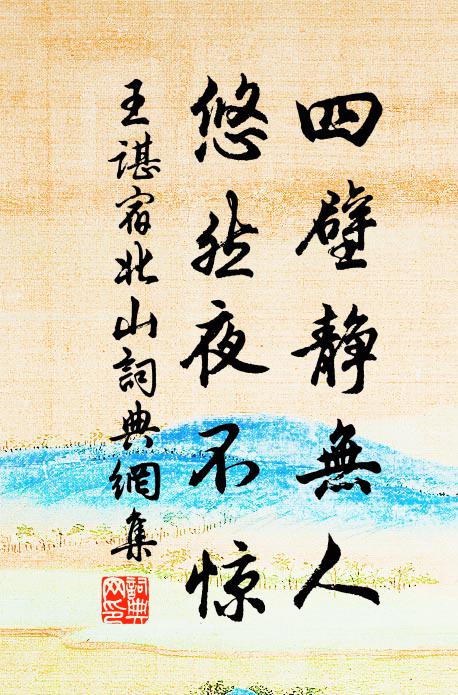 四壁静無人
悠然夜不惊
王諶宿北山詞典網集
詞典